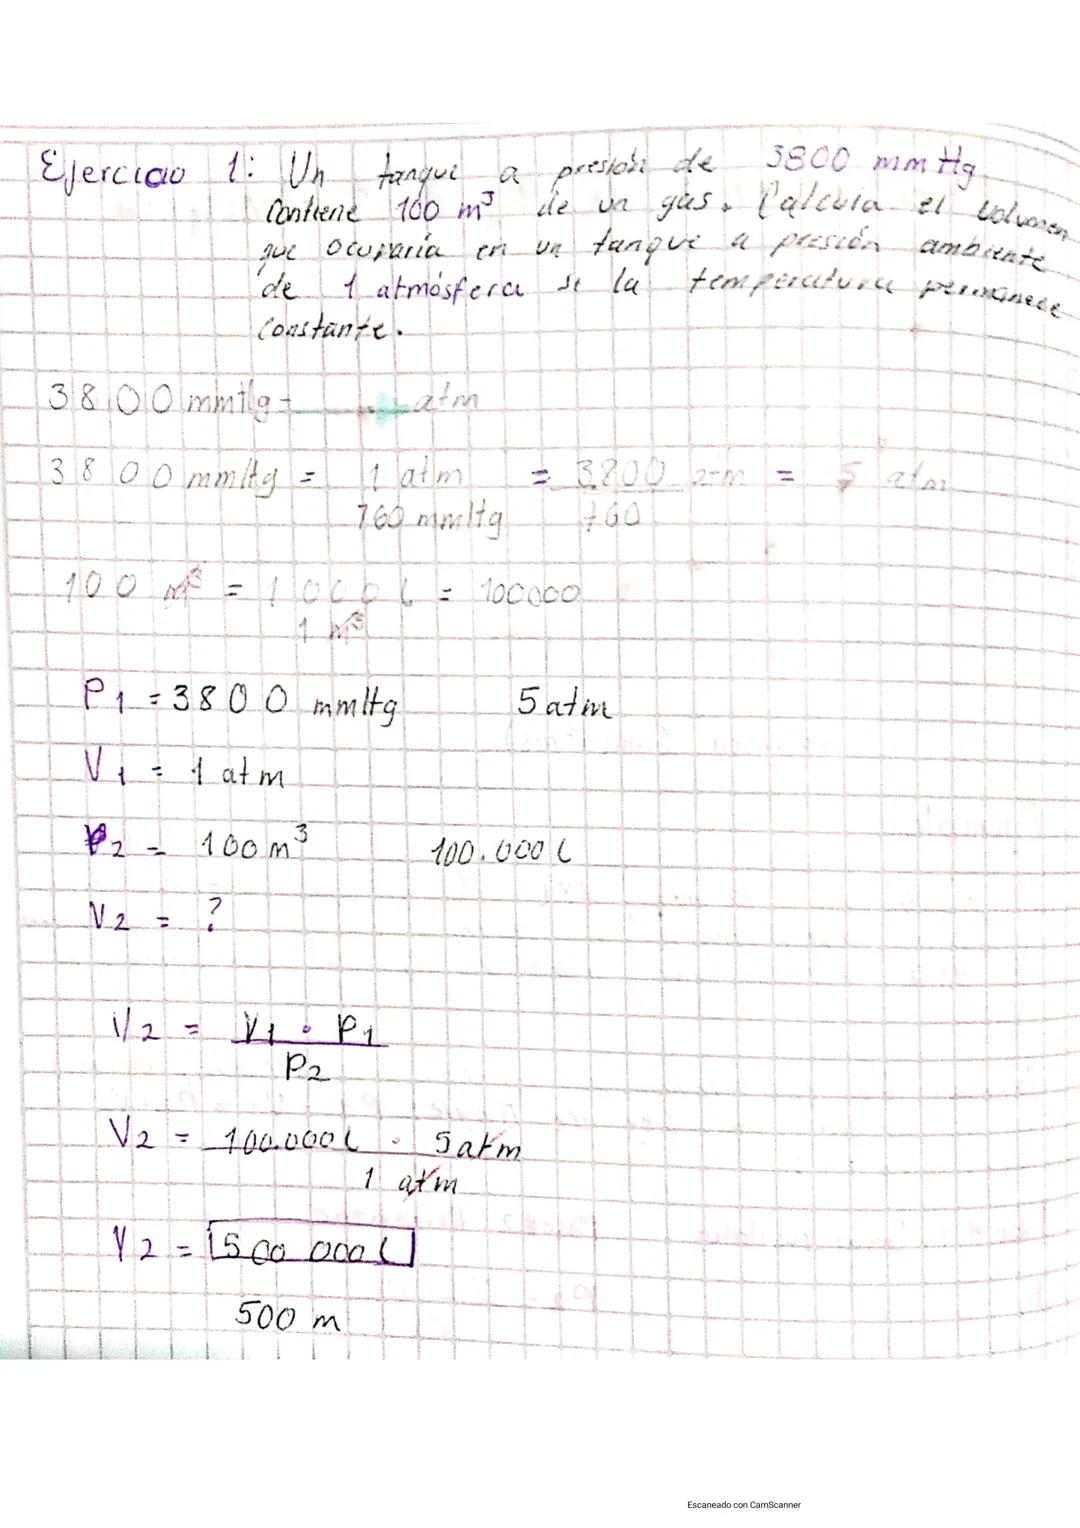 Ejercicio 1: Un tanque a presión de 3800 mmHg
Contiene 100 m³ de un gas. Calcula el volumen
que ocuparía en un tanque a presión ambiente
de 1 atmósfera si la temperatura permanece
Constante.
3800 mmHg → atm
3800 mmHg = 1 atm = 3800 atm = 5 atm
760 mmHg 760
100 m³ = 1000 L = 100000
1 m³
P1 = 3800 mmHg 5 atm
V1 = 1 atm
P2 = 100 m³ 100.000 L
V2 = ?
V2 = V1 · P1
P2
V2 = 100.000 L · 5 atm
1 atm
V2 = 500 000 L
500 m
Escaneado con CamScanner